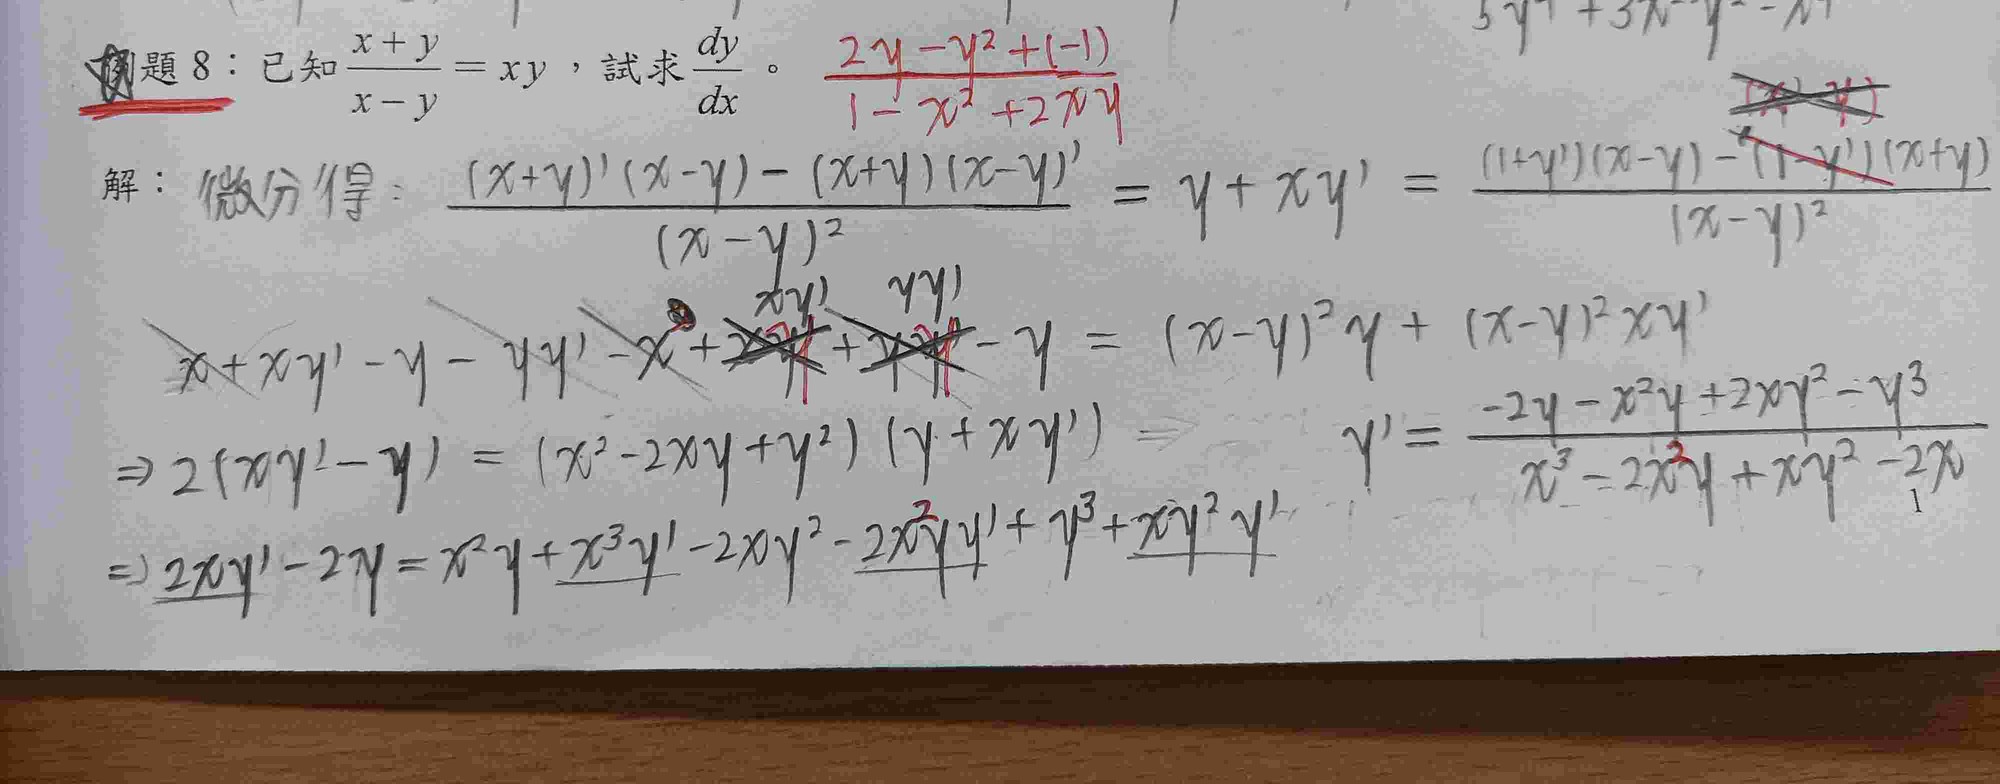 例題 8：已知 (x+y)/(x−y) = xy，試求 dy/dx。 (2y−y²+(−1))/(1−x²+2xy)
解： 微分得： ((x+y)'(x−y)−(x+y)(x−y)')/(x−y)² = y+xy' = ((1+y')(x−y)−(1−y')(x+y))/(x−y)²
x+xy'−y−yy'−x+xy'+yy'−y = (x−y)²y + (x−y)²xy'
⇒ 2(xy'−y) = (x²−2xy+y²)(y+xy') y' = (−2y−x²y+2xy²−y³)/(x³−2x²y+xy²−2x)
⇒ 2xy'−2y = x²y+x³y'−2xy²−2x²yy'+y³+xy²y'
1